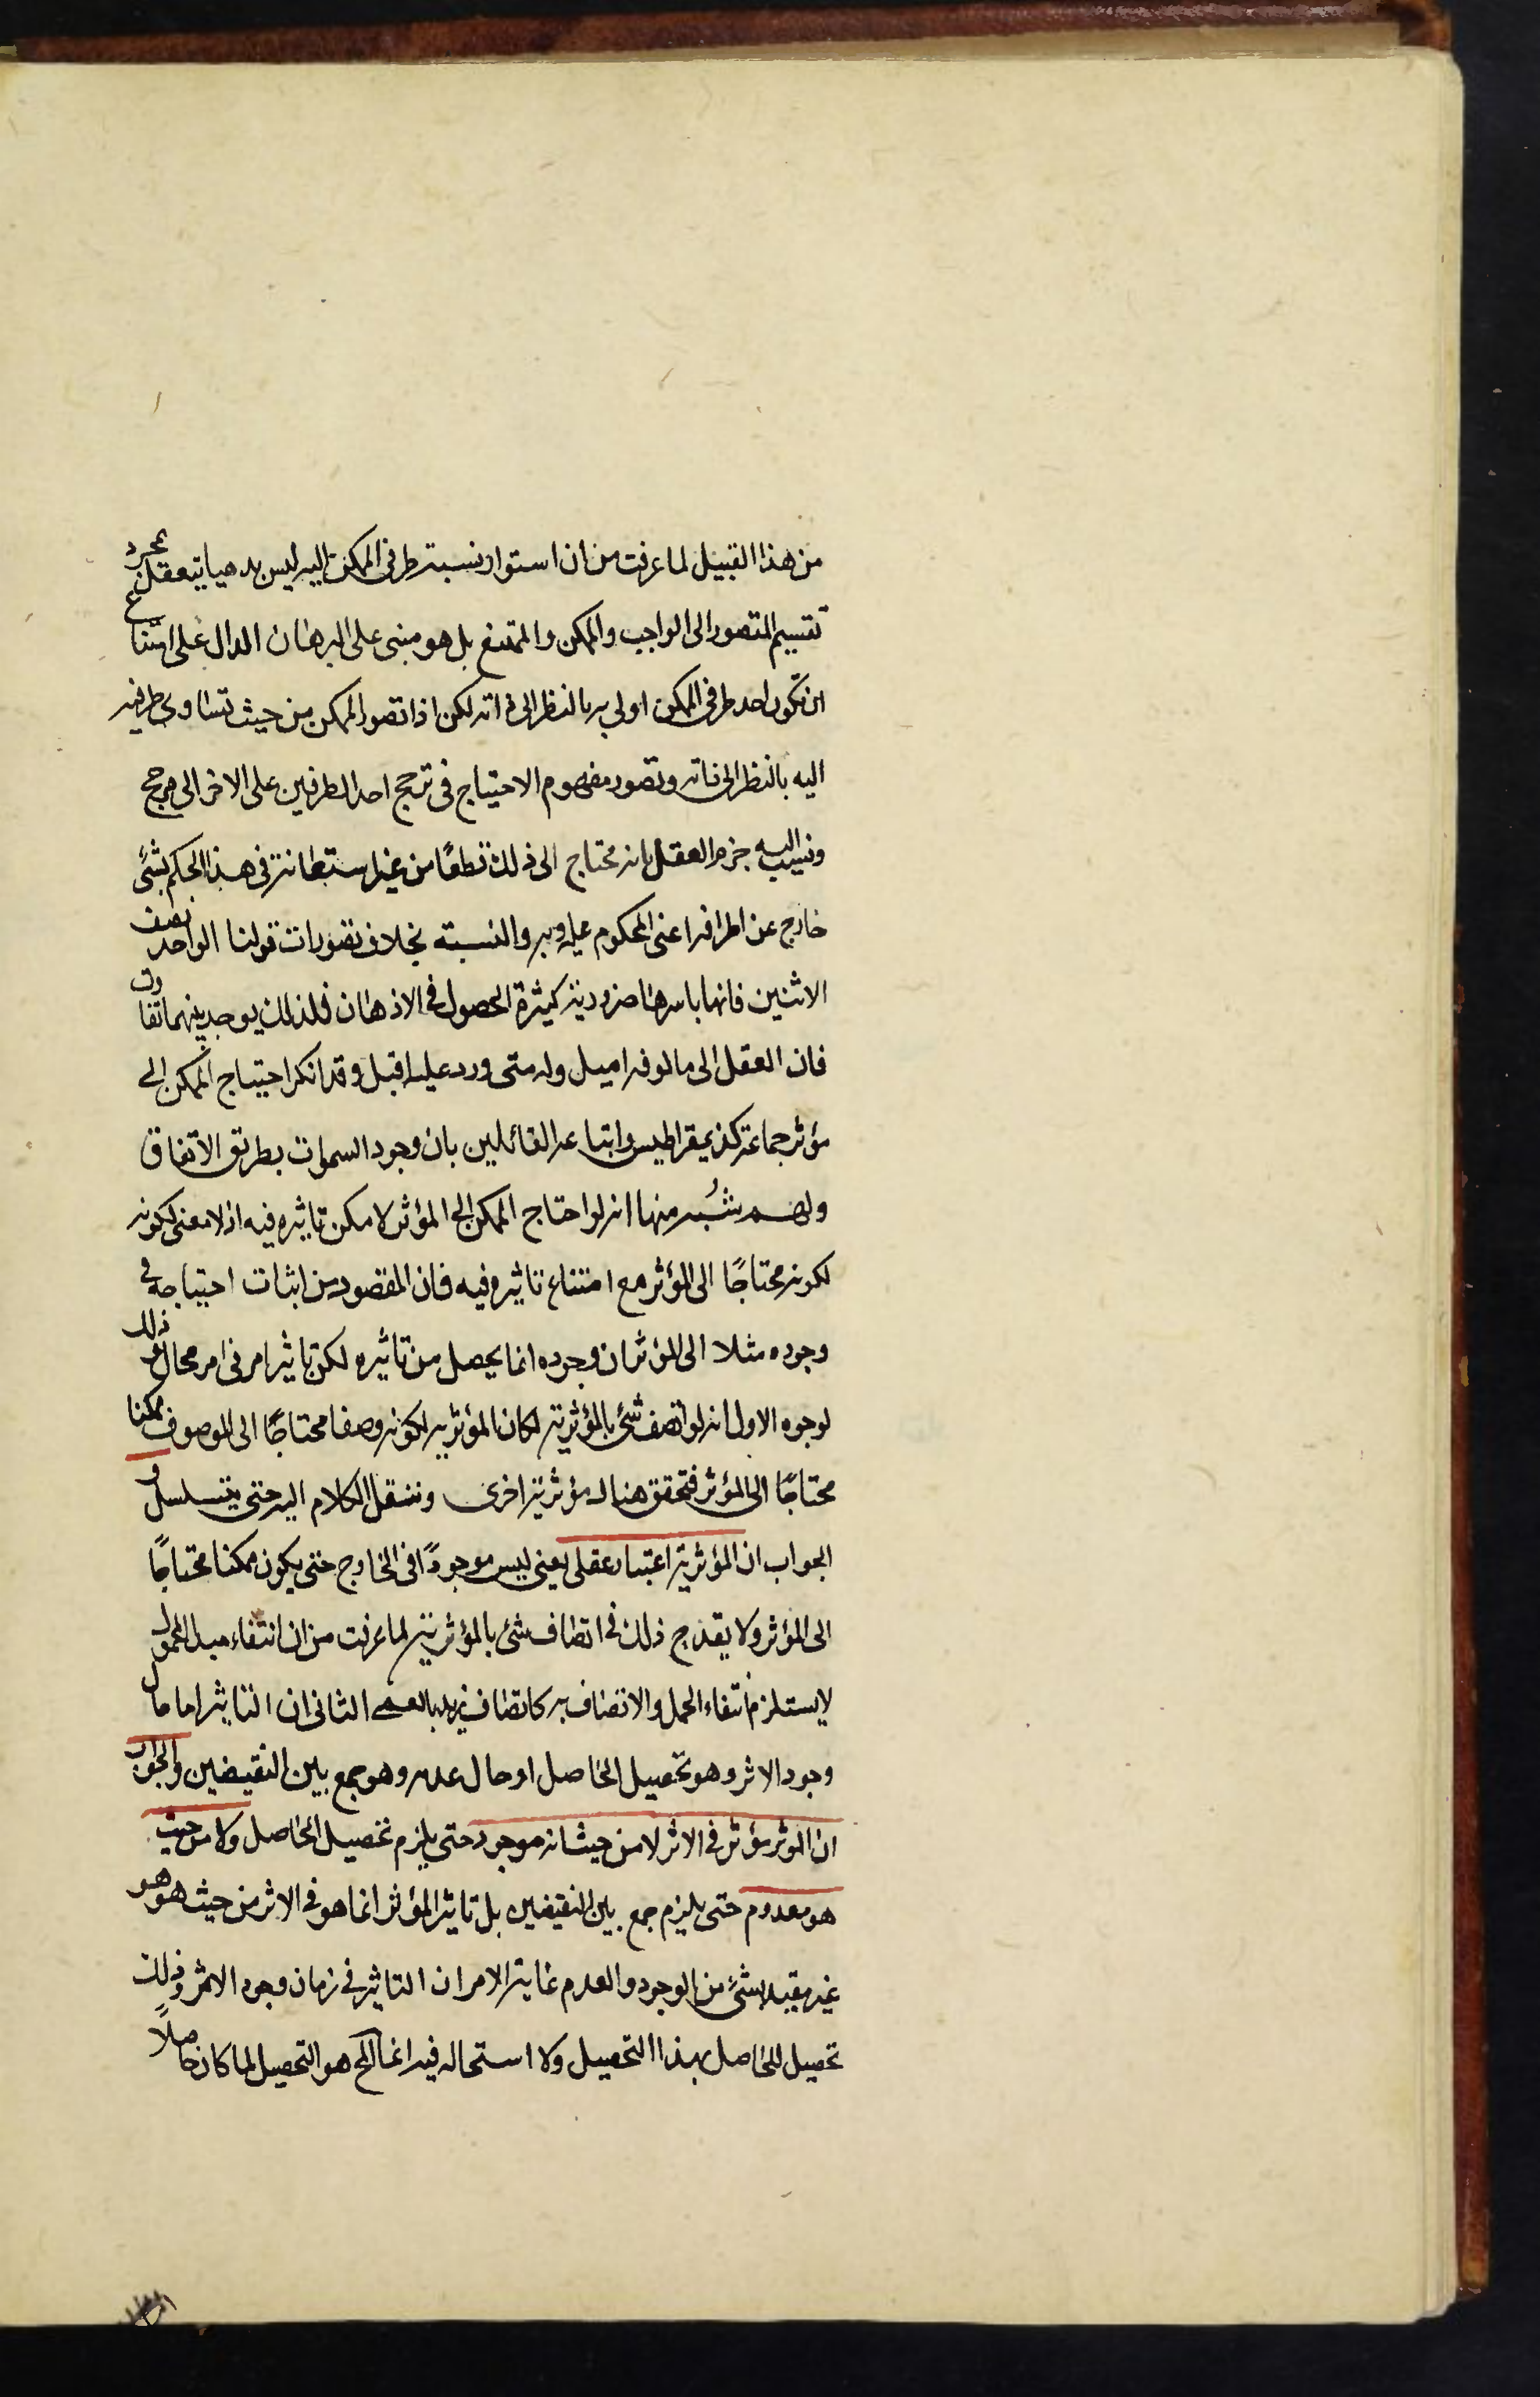 من هذا القبيل لما عرفت من ان استواء نسبة طرفى الممكن اليه ليس بديهيا يتعقل بمجرد
تقسيم المتصور الى الواجب والممكن والممتنع بل هو مبنى على البرهان الدال على امتناع
ان تكون احد طرفى الممكن اولى به بالنظر الى ذاته لكن اذا تصور الممكن من حيث تساوى طرفيه
اليه بالنظر الى ذاته وتصور مفهوم الاحتياج فى ترجح احد الطرفين على الاخر الى مرجح
ونسب اليه جزم العقل بانه محتاج الى ذلك قطعًا من غير استعانة فى هذا الحكم بشئ
خارج عن اطرافه اعنى المحكوم عليه وبه والنسبة بخلاف تصورات قولنا الواحد نصف
الاثنين فانها باسرها ضرورية كثيرة الحصول فى الاذهان فلذلك يوجد بينهما تفاوت
فان العقل الى مالوفه اميل وله متى ورد عليه اقبل وقد انكر احتياج الممكن الى
مؤثر جماعة كذيمقراطيس واتباعه القائلين بان وجود السموات بطريق الاتفاق
ولهم شُبه منها انه لو احتاج الممكن الى المؤثر لامكن تاثيره فيه اذ لا معنى لكونه
لكونه محتاجًا الى المؤثر مع امتناع تاثيره فيه فان المقصود من اثبات احتياجه فى
وجوده مثلا الى المؤثر ان وجوده انما يحصل من تاثيره لكن تاثير امر فى امر محال وذلك
لوجوه الاول انه لو اتصف شئ بالمؤثرية لكان المؤثرية لكونه وصفا محتاجًا الى الموصوف ممكنا
محتاجًا الى المؤثر فتحقق هناك مؤثرية اخرى وننقل الكلام اليه حتى يتسلسل و
الجواب ان المؤثرية اعتبار عقلى يعنى ليس موجودًا فى الخارج حتى يكون ممكنا محتاجًا
الى المؤثر ولا يقدح ذلك فى اتصاف شئ بالمؤثرية لما عرفت من ان انتفاء مبدا المحمول
لا يستلزم انتفاء الحمل والاتصاف به كاتصاف زيد بالعمى الثانى ان التاثير اما حال
وجود الاثر وهو تحصيل الحاصل او حال عدمه وهو جمع بين النقيضين والجواب
ان الموثر مؤثر فى الاثر لا من حيث انه موجود حتى يلزم تحصيل الحاصل ولا من حيث
هو معدوم حتى يلزم جمع بين النقيضين بل تاثير المؤثر انما هو فى الاثر من حيث هو هو
غير مقيد بشئ من الوجود والعدم غاية الامر ان التاثير فى زمان وجود الاثر وذلك
تحصيل للحاصل بهذا التحصيل ولا استحاله فيه انما المح هو التحصيل لما كان حاصلًا